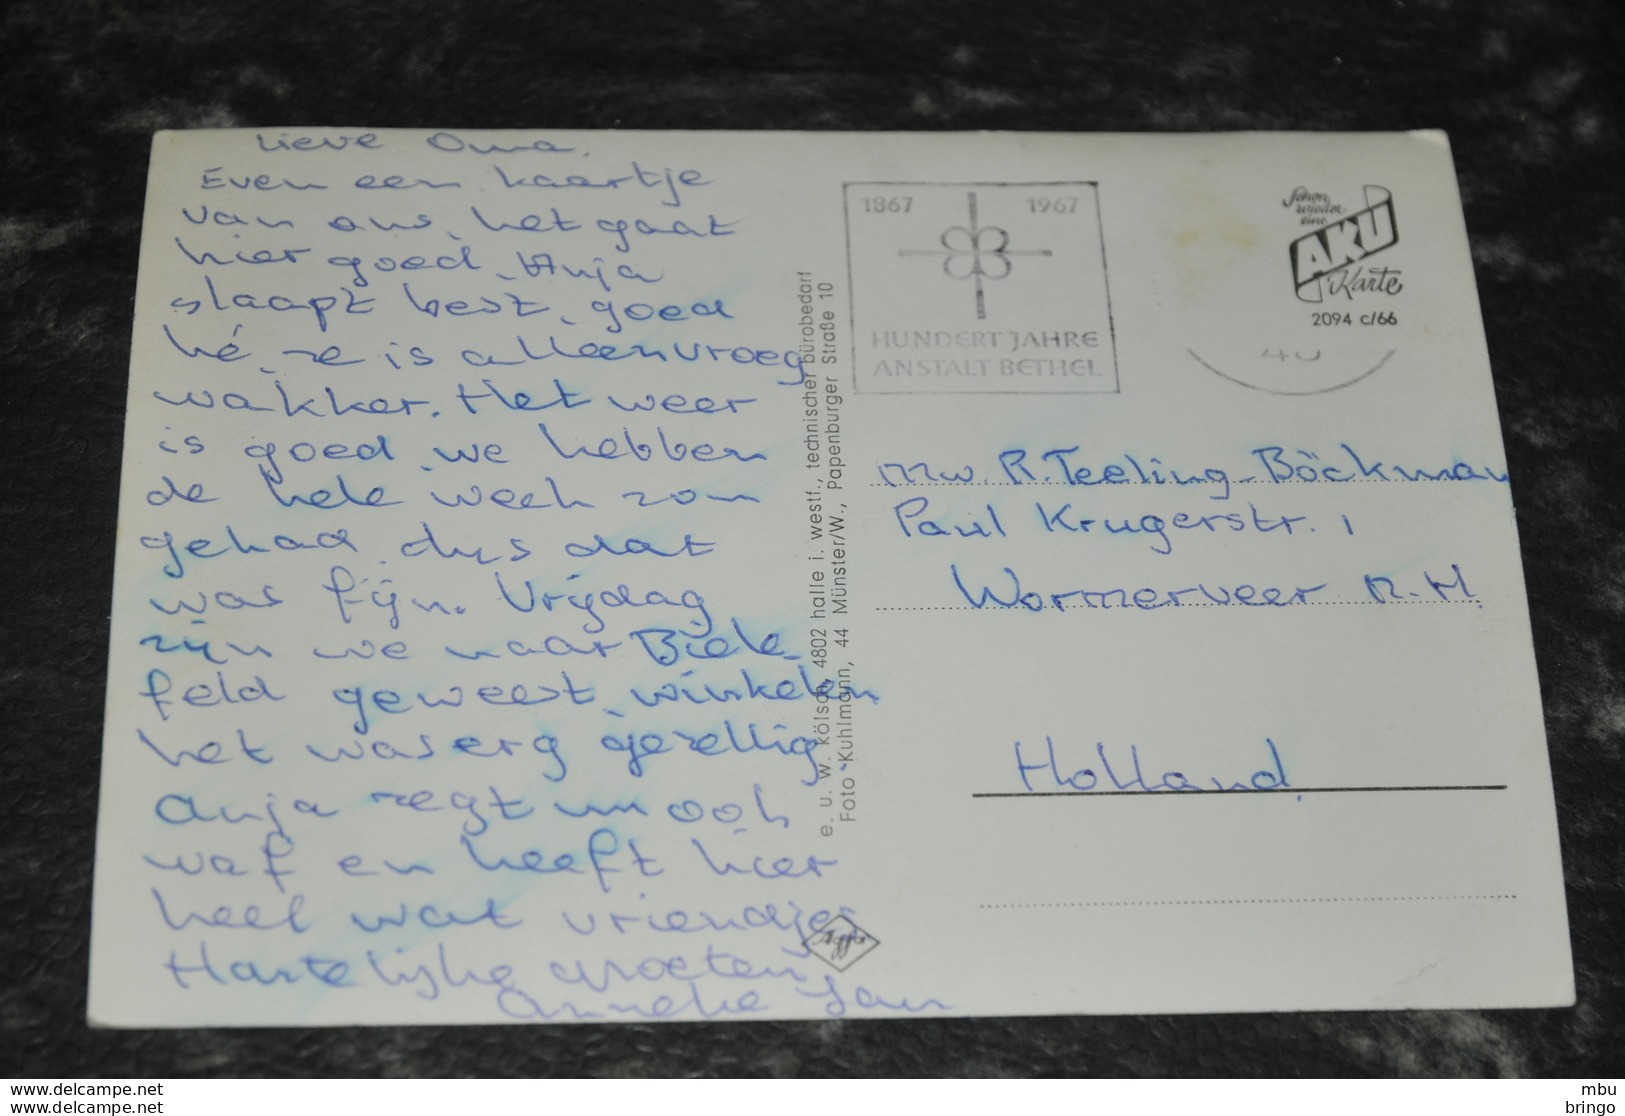 Lieve Oma.
Even een kaartje
van ons, het gaat
hier goed. Anja
slaapt best, goed
hé, ze is alleen vroeg
wakker. Het weer
is goed, we hebben
de hele week zon
gehad, dus dat
was fijn. Vrijdag
zijn we naar Biele-
feld geweest, winkelen
het was erg gezellig
Anja zegt nu ook
waf en heeft hier
heel wat vriendjes
Hartelijke groeten
Anneke Jan
e. u. w. kölsch, 4802 halle i. westf., technischer bürobedarf
Foto Kuhlmann, 44 Münster/W., Papenburger Straße 10
Agfa
1867 1967
HUNDERT JAHRE
ANSTALT BETHEL
40
Schon
wieder
eine
AKU
Karte
2094 c/66
mw. R. Teeling-Böckman
Paul Krugerstr. 1
Wormerveer N.H.
Holland.
delcampe.net
delcampe.net
mbu
bringo